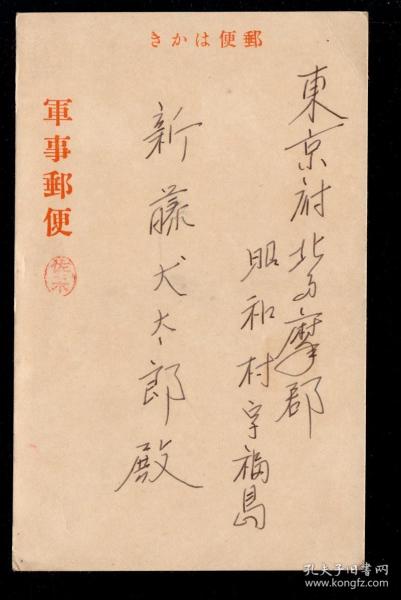 郵便はかき
東京府北多摩郡
昭和村字福島
新藤犬太郎殿
軍事郵便
佐木
孔夫子旧书网
www.kongfz.com